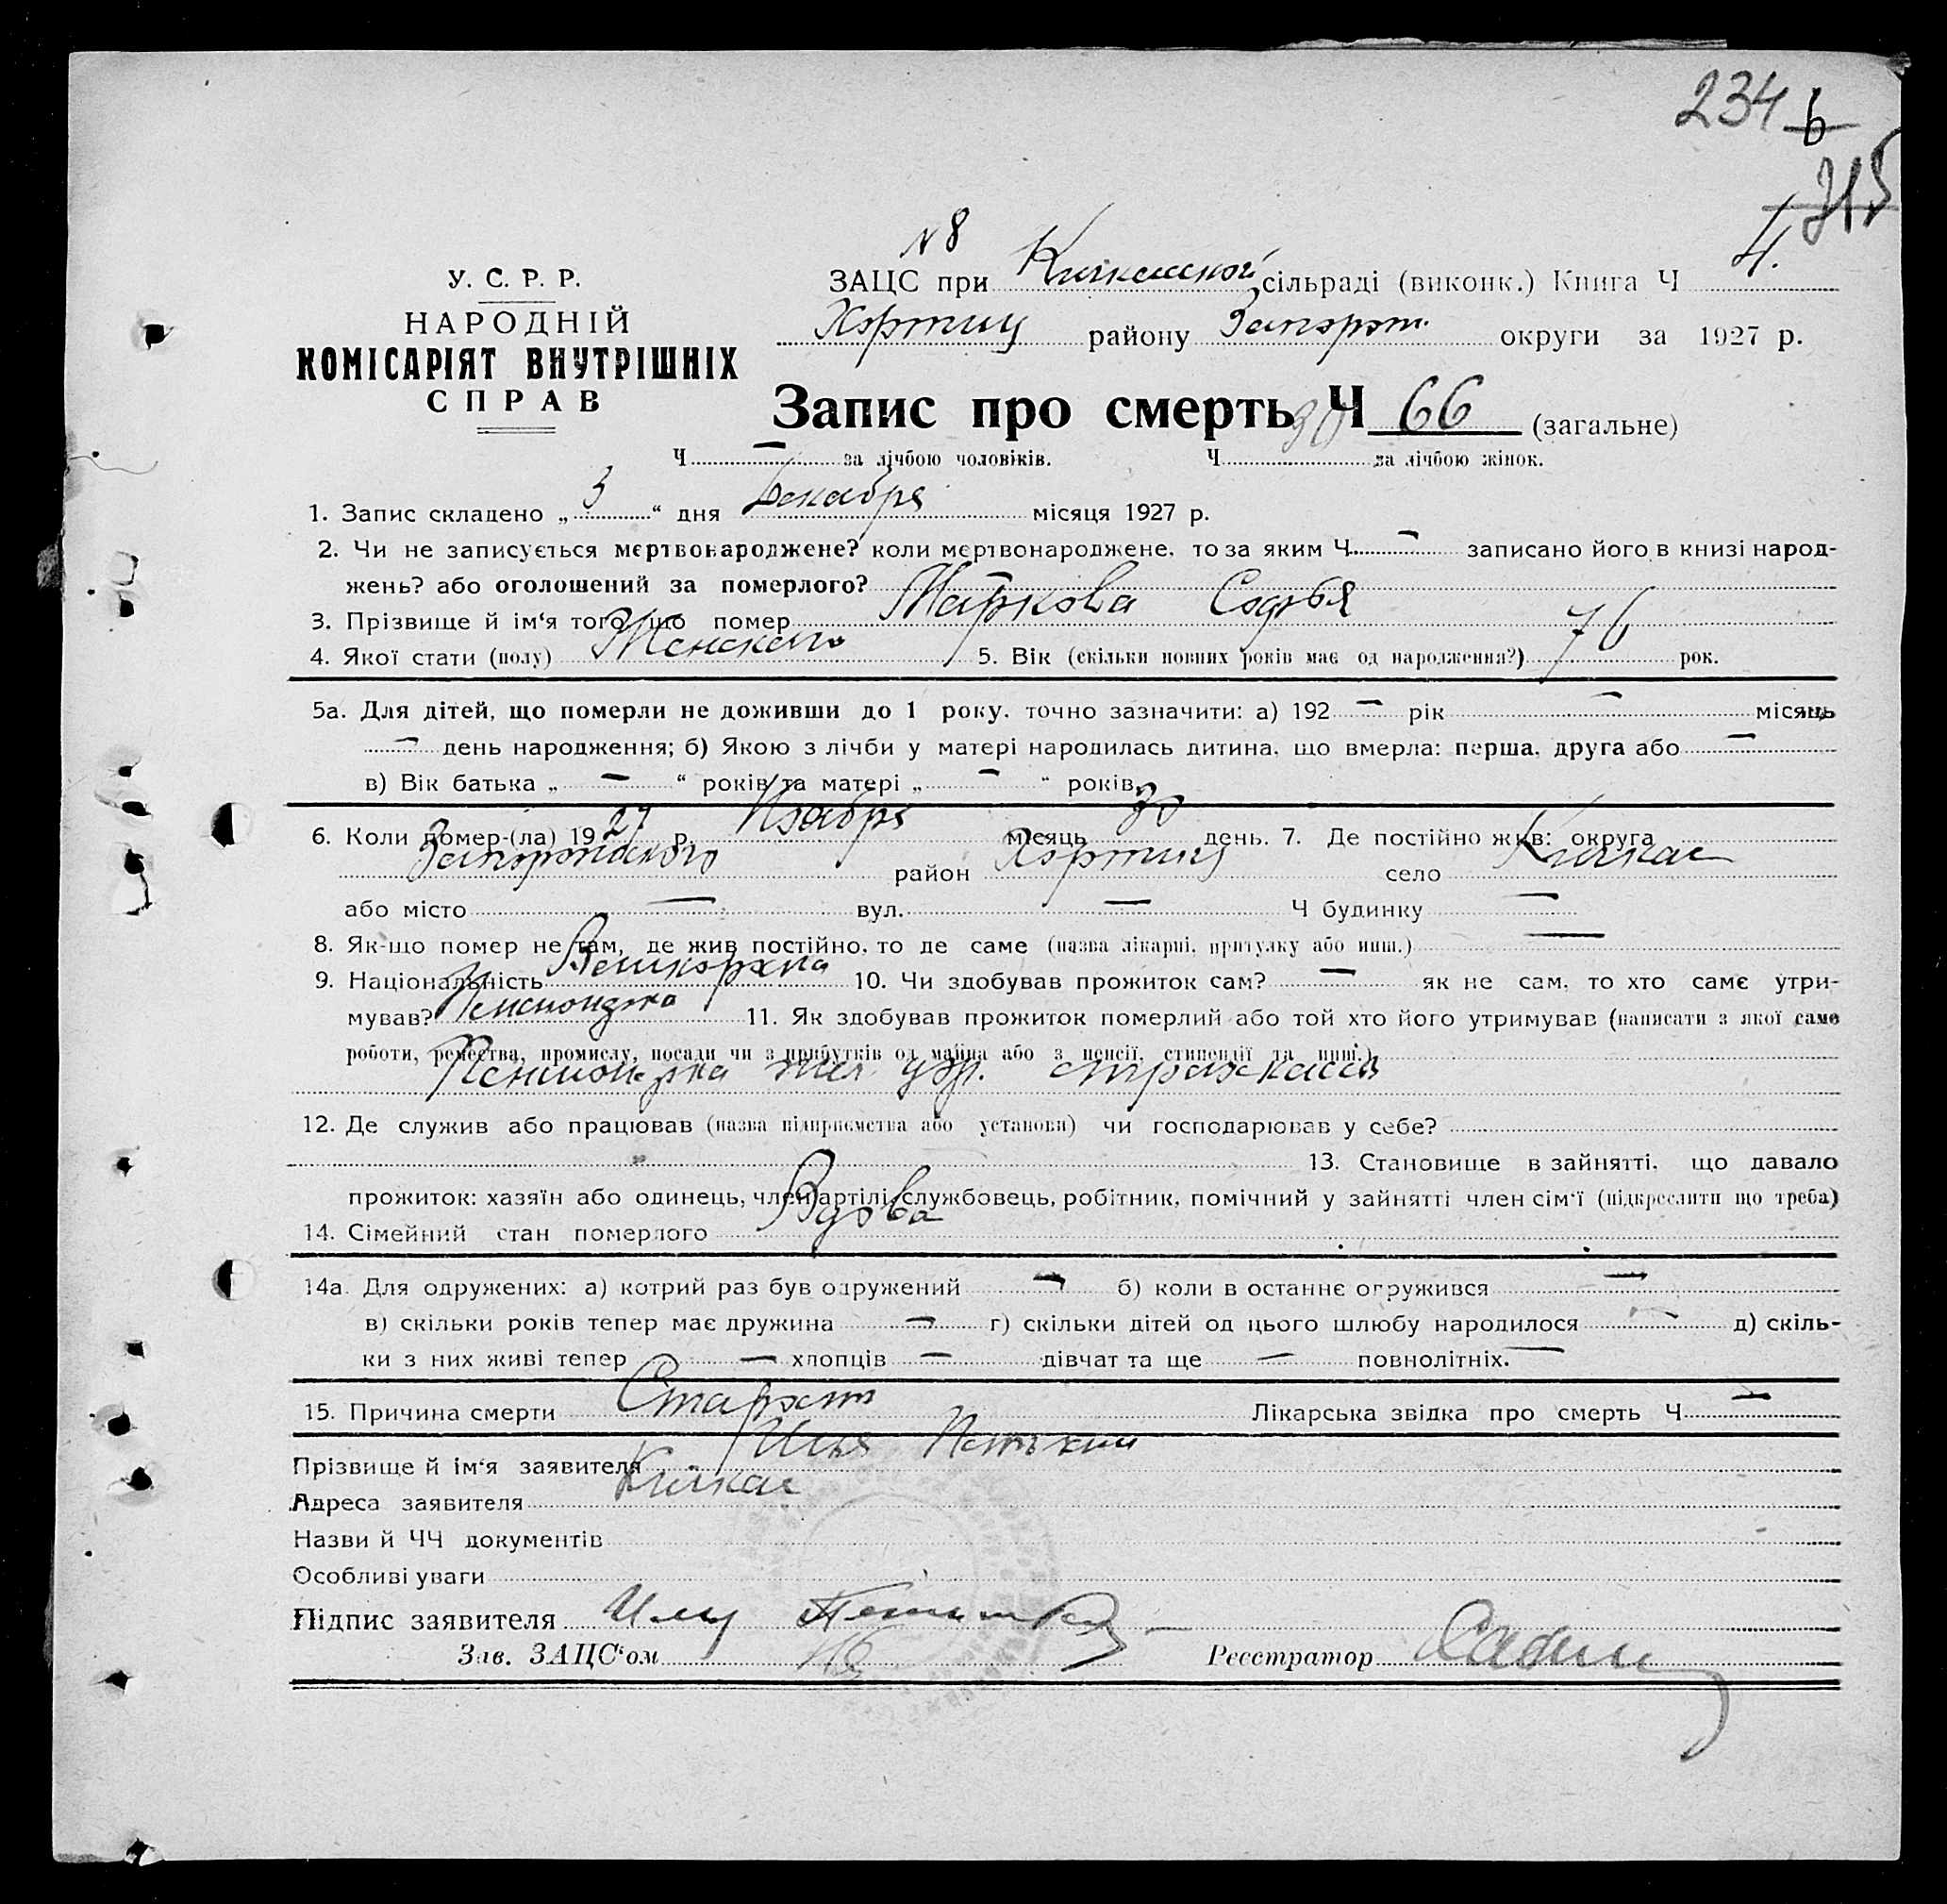 234 6
315
N 8
У. С. Р. Р.
НАРОДНІЙ
КОМІСАРІЯТ ВНУТРІШНІХ
СПРАВ
ЗАЦС при Кичкасской сільраді (виконк.) Книга Ч 4.
Хортиц району Запорож. округи за 1927 р.
Запис про смерть Ч 66 (загальне)
30
Ч — за лічбою чоловіків. Ч за лічбою жінок.
1. Запис складено „ 3 “ дня Декабря місяця 1927 р.
2. Чи не записується мертвонароджене? коли мертвонароджене, то за яким Ч — записано його в книзі народ-
жень? або оголошений за померлого? —
3. Прізвище й ім‘я того, що помер Маркова Софья
4. Якої стати (полу) Женского 5. Вік (скільки повних років має од народження?) 76 рок.
5а. Для дітей, що померли не доживши до 1 року, точно зазначити: а) 192 — рік — місяць
— день народження; б) Якою з лічби у матері народилась дитина, що вмерла: перша, друга або —
в) Вік батька „ — “ років та матері „ — “ років.
6. Коли помер-(ла) 1927 р. Ноября місяць 30 день. 7. Де постійно жив: округа
Запорожского район Хортиц село Кичкас
або місто — вул. — Ч будинку —
8. Як-що помер не там, де жив постійно, то де саме (назва лікарні, притулку або инш.) —
9. Національність 10. Чи здобував прожиток сам? — як не сам, то хто саме утри-
мував? 11. Як здобував прожиток померлий або той хто його утримував (написати з якої саме
роботи, ремества, промислу, посади чи з прибутків од майна або з пенсії, стипендії та инш.)
Пенсионерка страхкассы
12. Де служив або працював (назва підприємства або установи) чи господарював у себе?
13. Становище в зайнятті, що давало
прожиток: хазяїн або одинець, член артілі, службовець, робітник, помічний у зайнятті член сім‘ї (підкреслити що треба)
14. Сімейний стан померлого Вдова
14а. Для одружених: а) котрий раз був одружений — б) коли в останнє одружився —
в) скільки років тепер має дружина — г) скільки дітей од цього шлюбу народилося — д) скіль-
ки з них живі тепер — хлопців — дівчат та ще — повнолітніх. —
15. Причина смерти Старость Лікарська звідка про смерть Ч —
Прізвище й ім‘я заявителя Илья
Адреса заявителя Кичкас
Назви й ЧЧ документів
Особливі уваги
Підпис заявителя
Зав. ЗАЦС‘ом Реєстратор